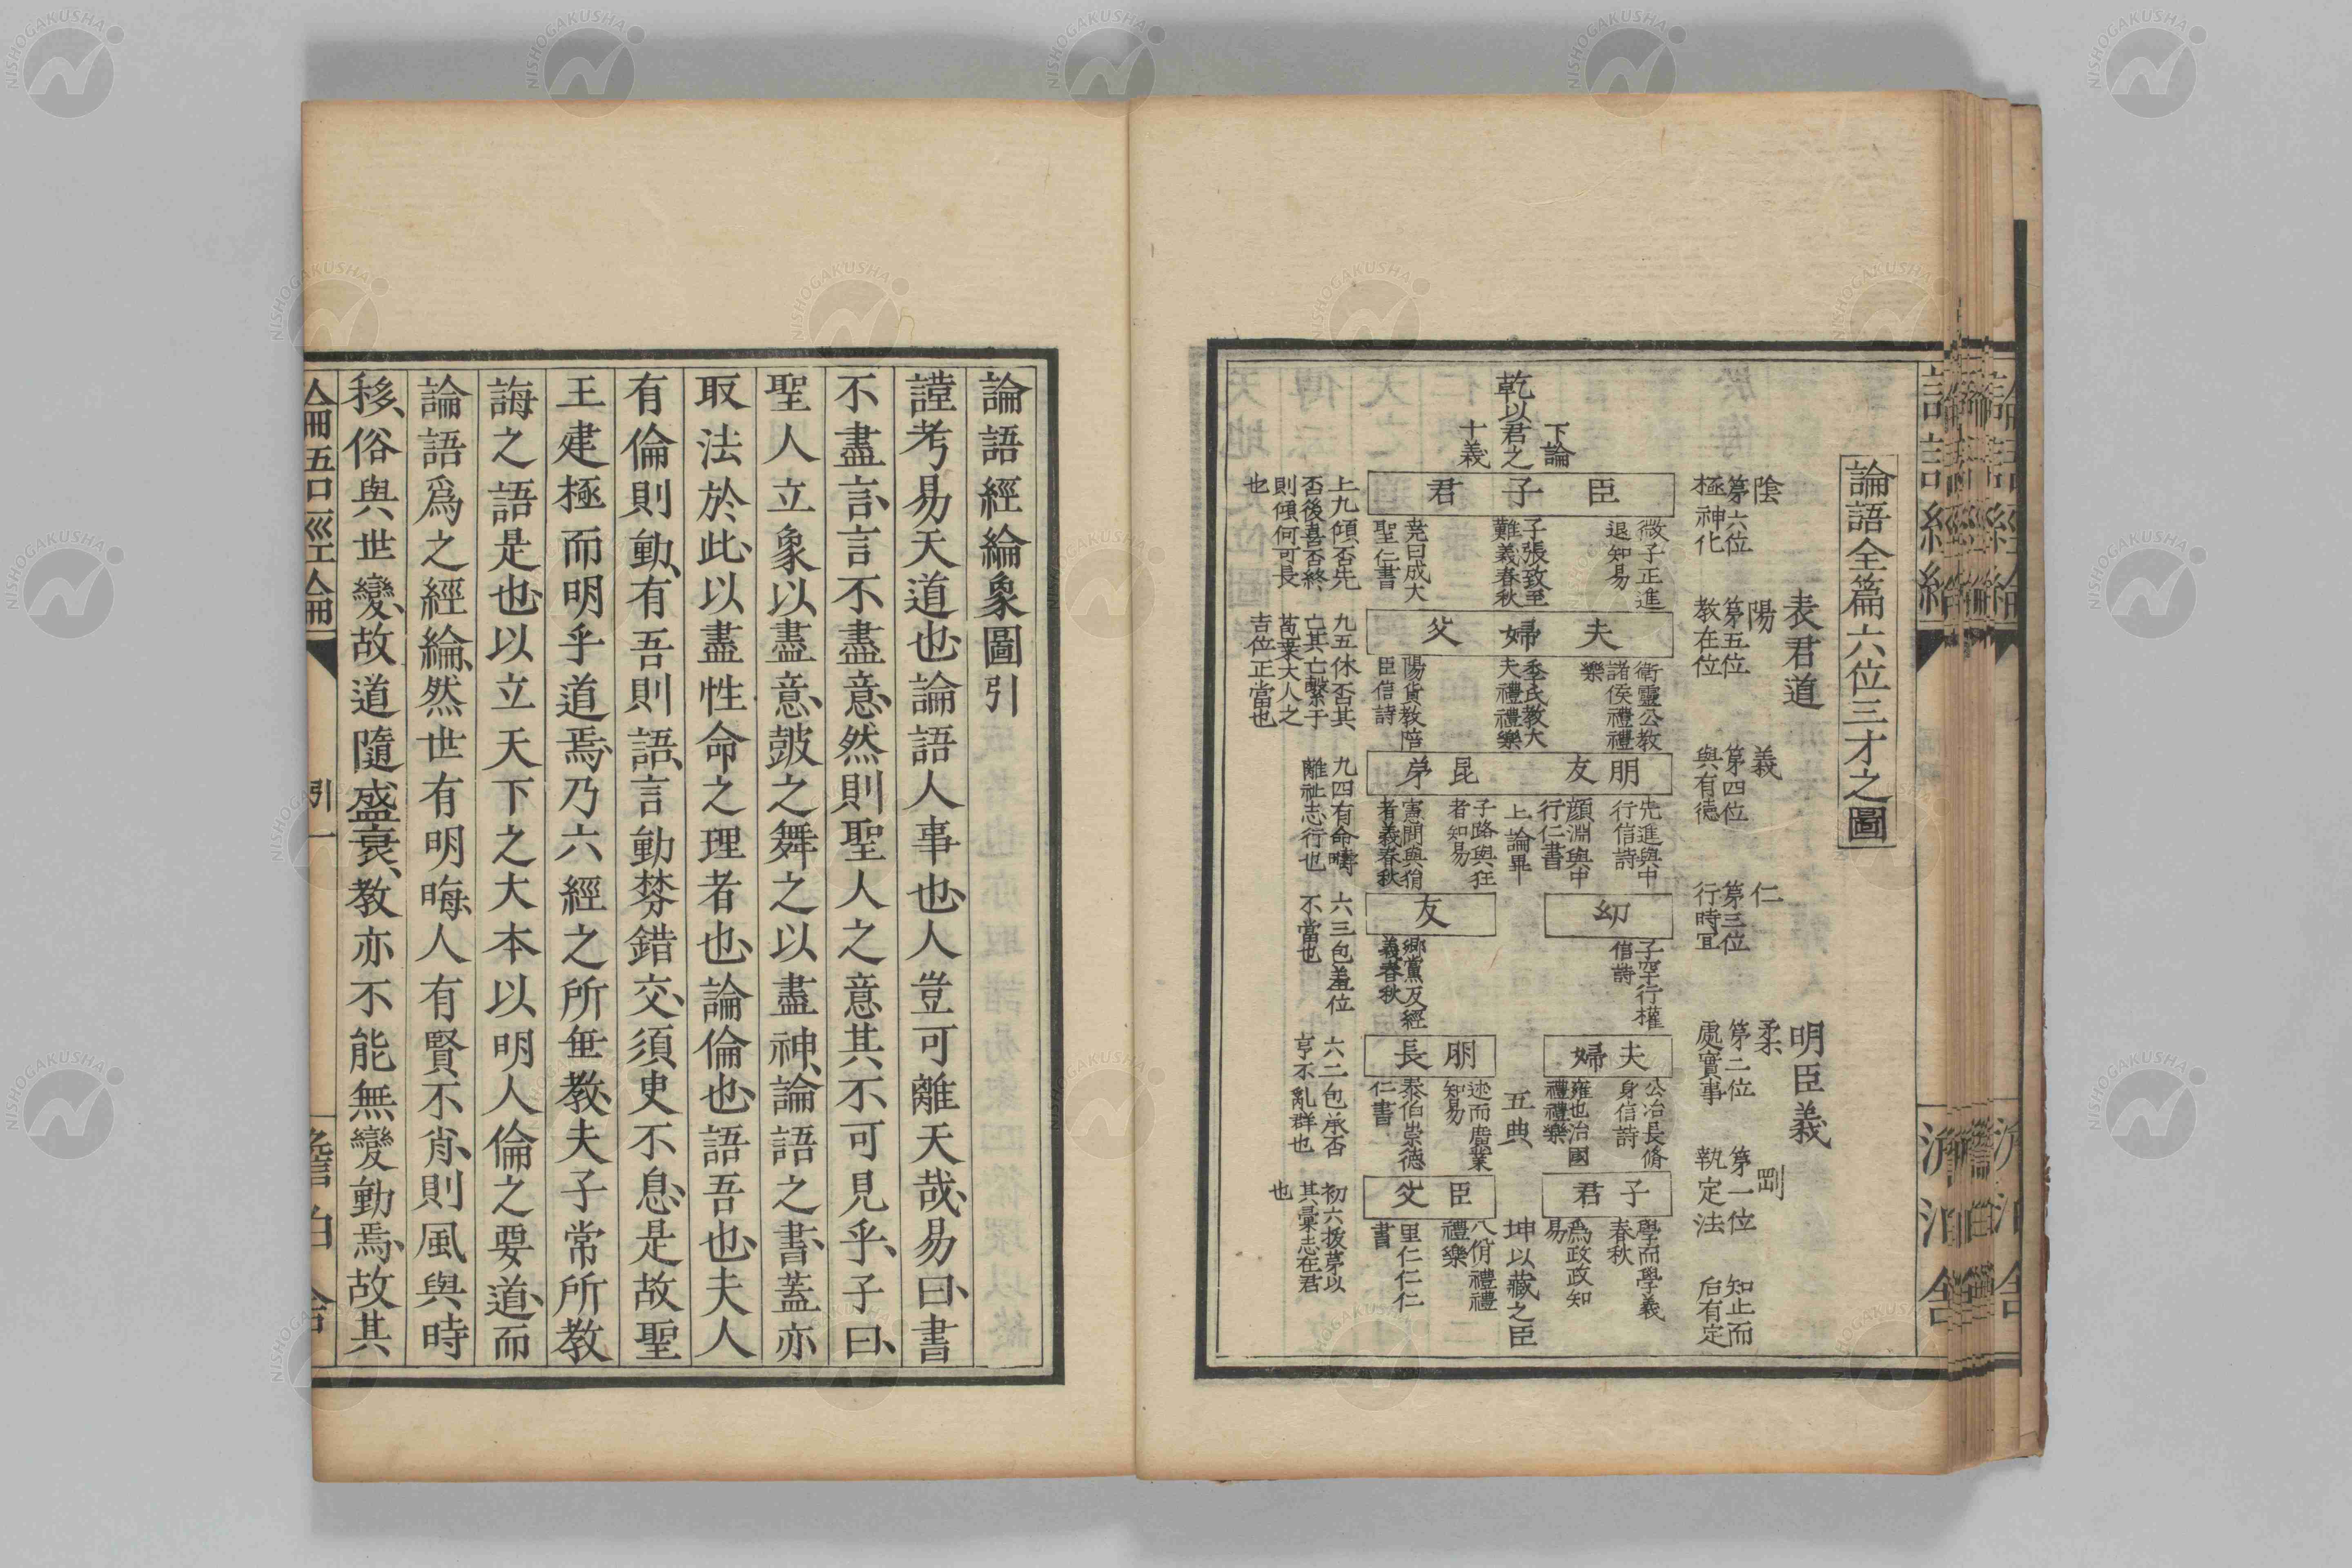 論語全篇六位三才之圖
表君道
明臣義
陰
第六位
極神化
陽
第五位
教在位
義
第四位
與有德
仁
第三位
行時宜
柔
第二位
處實事
剛
第一位
執定法
知止而
后有定
下論
乾以君之
十義
臣 子 君
微子正進
退知易
子張致至
難義春秋
堯曰成大
聖仁書
上九傾否先
否後喜否終
則傾何可長
也
夫 婦 父
衛靈公教
諸侯禮禮
樂
季氏教大
夫禮禮樂
陽貨教陪
臣信詩
九五休否其
亡其亡繫于
苞桑大人之
吉位正當也
朋友 昆弟
先進與中
行信詩
顏淵與中
行仁書
上論畢
子路與狂
者知易
憲問與狷
者義春秋
九四有命疇
離祉志行也
幼 友
子罕行權
信詩
鄉黨反經
義春秋
六三包羞位
不當也
夫婦 朋長
公冶長脩
身信詩
雍也治國
禮禮樂
五典
述而廣業
知易
泰伯崇德
仁書
六二包承否
亨不亂群也
子君 臣父
學而學義
春秋
爲政政知
易
坤以藏之臣
八佾禮禮
禮樂
里仁仁仁
書
初六拔茅以
其彙志在君
也
論語經綸象圖引
謹考易天道也論語人事也人豈可離天哉易曰書
不盡言言不盡意然則聖人之意其不可見乎子曰
聖人立象以盡意皷之舞之以盡神論語之書蓋亦
取法於此以盡性命之理者也論倫也語吾也夫人
有倫則動有吾則語言動棼錯交須臾不息是故聖
王建極而明乎道焉乃六經之所垂教夫子常所教
誨之語是也以立天下之大本以明人倫之要道而
論語爲之經綸然世有明晦人有賢不肖則風與時
移俗與世變故道隨盛衰教亦不能無變動焉故其
論語經綸
引一
澹泊舍
NISHOGAKUSHA